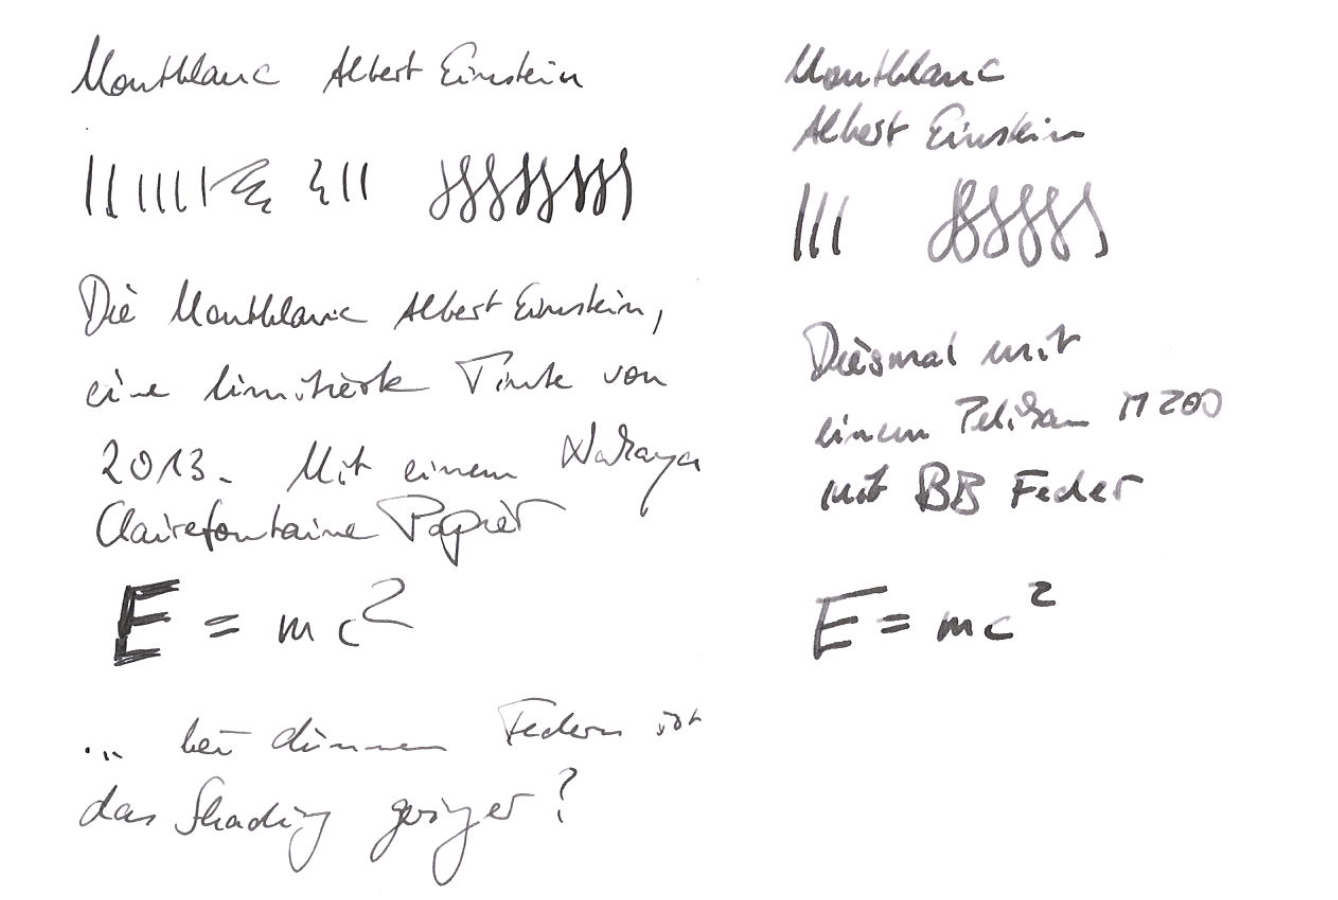 Montblanc Albert Einstein
Die Montblanc Albert Einstein,
eine limitierte Tinte von
2013. Mit einem Nakaya
Clairefontaine Papier
E = mc²
... bei dünnen Federn ist
das Shading geringer?
Montblanc
Albert Einstein
Diesmal mit
einem Pelikan M200
mit BB Feder
E = mc²